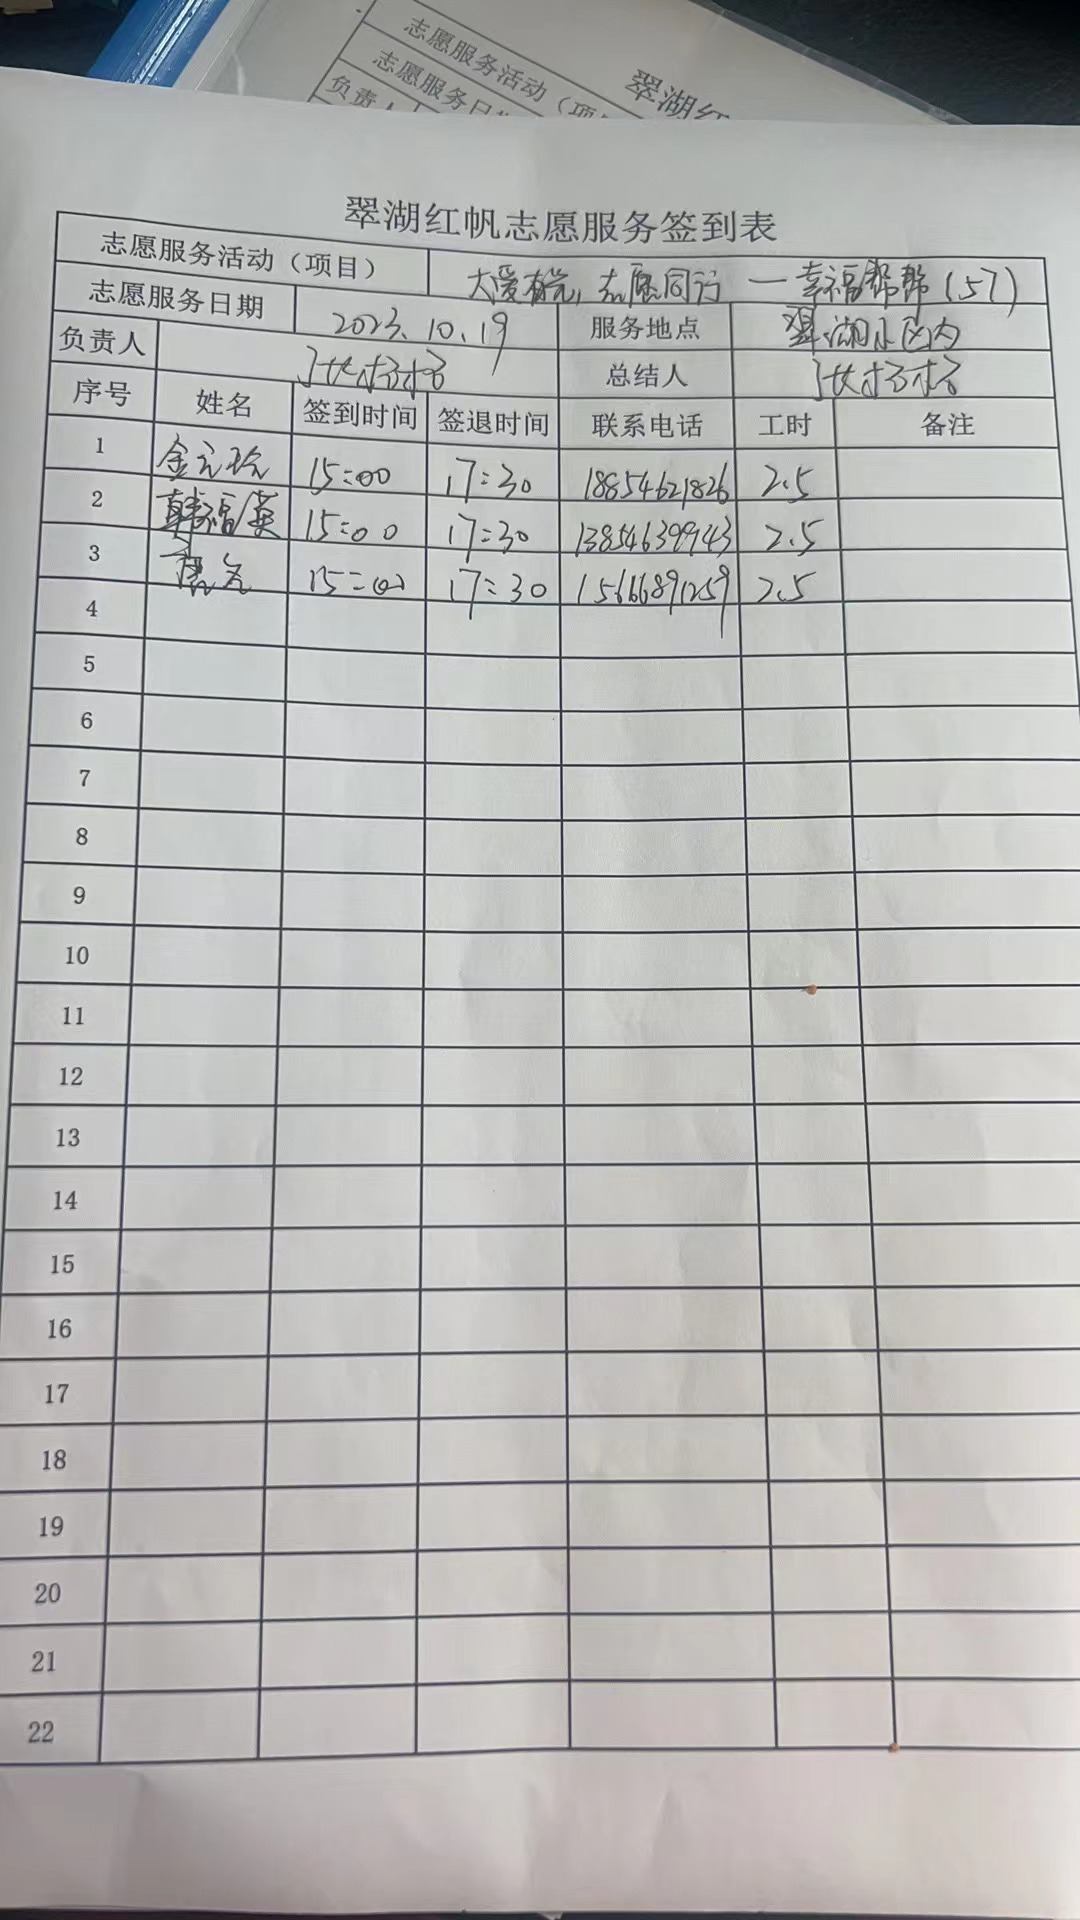 志愿服务活动（项
翠湖红
志愿服务日期
负责人
翠湖红帆志愿服务签到表
志愿服务活动（项目） 大爱有光，志愿同行 — 幸福帮帮（57）
志愿服务日期 2023.10.19 服务地点 翠湖小区内
负责人 总结人
序号 姓名 签到时间 签退时间 联系电话 工时 备注
1 15:00 17:30 18854621826 2.5
2 韩福英 15:00 17:30 13854639943 2.5
3 15:00 17:30 15666891259 2.5
4
5
6
7
8
9
10
11
12
13
14
15
16
17
18
19
20
21
22